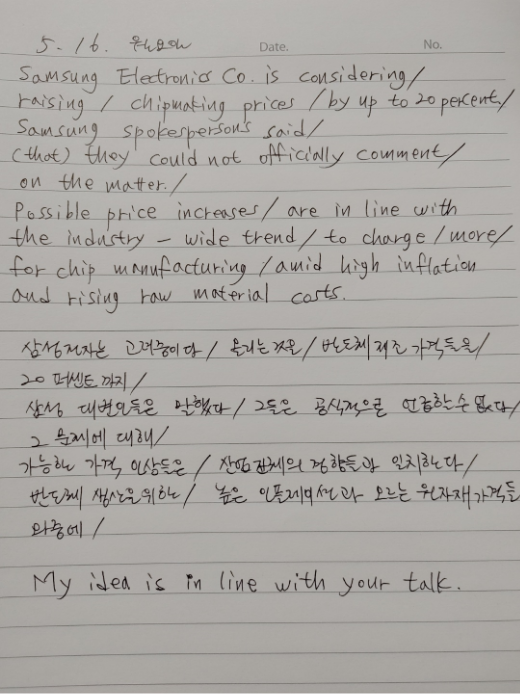 5. 16. 월요일 Date. No.
Samsung Electronics Co. is considering/
raising / chipmaking prices / by up to 20 percent/
Samsung spokespersons said/
(that) they could not officially comment/
on the matter./
Possible price increases / are in line with
the industry - wide trend / to charge / more/
for chip manufacturing / amid high inflation
and rising raw material costs.
삼성전자는 고려중이다 / 올리는것을 / 반도체 제조 가격들을/
20 퍼센트 까지/
삼성 대변인들은 말했다 / 그들은 공식적으로 언급할수 없다/
그 문제에 대해/
가능한 가격 인상들은 / 산업전체의 경향들과 일치한다/
반도체 생산을위한/ 높은 인플레이션과 오르는 원자재가격들
와중에 /
My idea is in line with your talk.